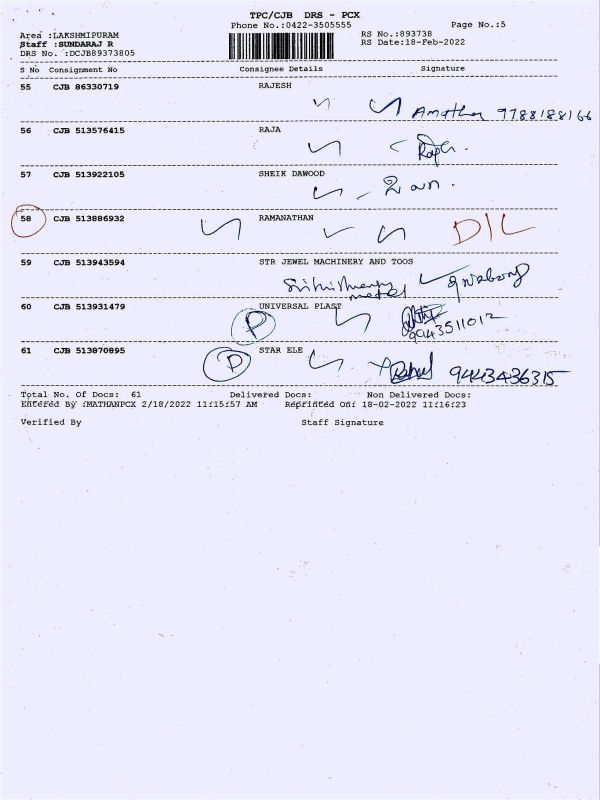 TPC/CJB DRS - PCX
Phone No.:0422-3505555 Page No.:5
Area :LAKSHMIPURAM RS No.:893738
Staff :SUNDARAJ R RS Date:18-Feb-2022
DRS No. :DCJB89373805
S No Consignment No Consignee Details Signature
55 CJB 86330719 RAJESH
9788188166
56 CJB 513576415 RAJA
57 CJB 513922105 SHEIK DAWOOD
58 CJB 513886932 RAMANATHAN
D/L
59 CJB 513943594 STR JEWEL MACHINERY AND TOOS
60 CJB 513931479 UNIVERSAL PLAST
P
9943511012
61 CJB 513870895 STAR ELE
P 9443436315
Total No. Of Docs: 61 Delivered Docs: Non Delivered Docs:
Entered By :MATHANPCX 2/18/2022 11:15:57 AM Reprinted On: 18-02-2022 11:16:23
Verified By Staff Signature